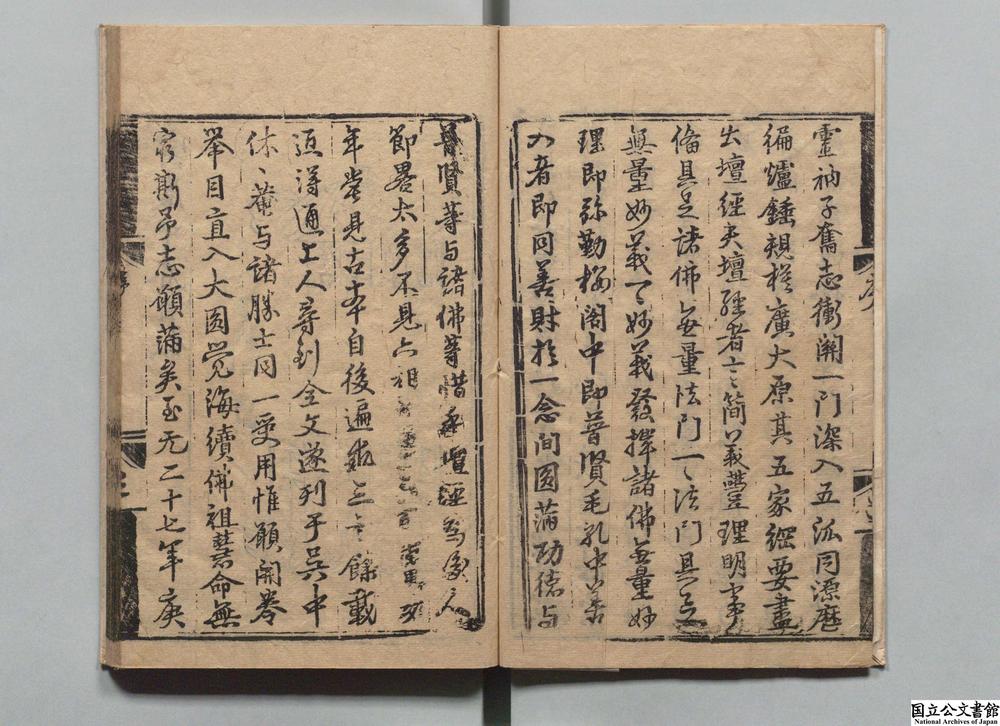 靈衲子奮志衝開一門深入五派同源歷
徧爐錘規模廣大原其五家綱要盡
出壇經夫壇經者言簡義豐理明事
俻具足諸佛無量法門一一法門具足
無量妙義一一妙義發揮諸佛無量妙
理即弥勒楼阁中即普賢毛孔中善
入者即同善財於一念间圆滿功徳与
普賢等与諸佛等惜乎壇經為後人
節畧太多不見六祖
年嘗見古本自後遍求三十餘載
近得通上人尋到全文遂刊于吳中
休〻庵与諸勝士同一受用惟願開卷
举目直入大圆覚海續佛祖慧命無
窮斯余志願滿矣至元二十七年庚
序
国立公文書館
National Archives of Japan